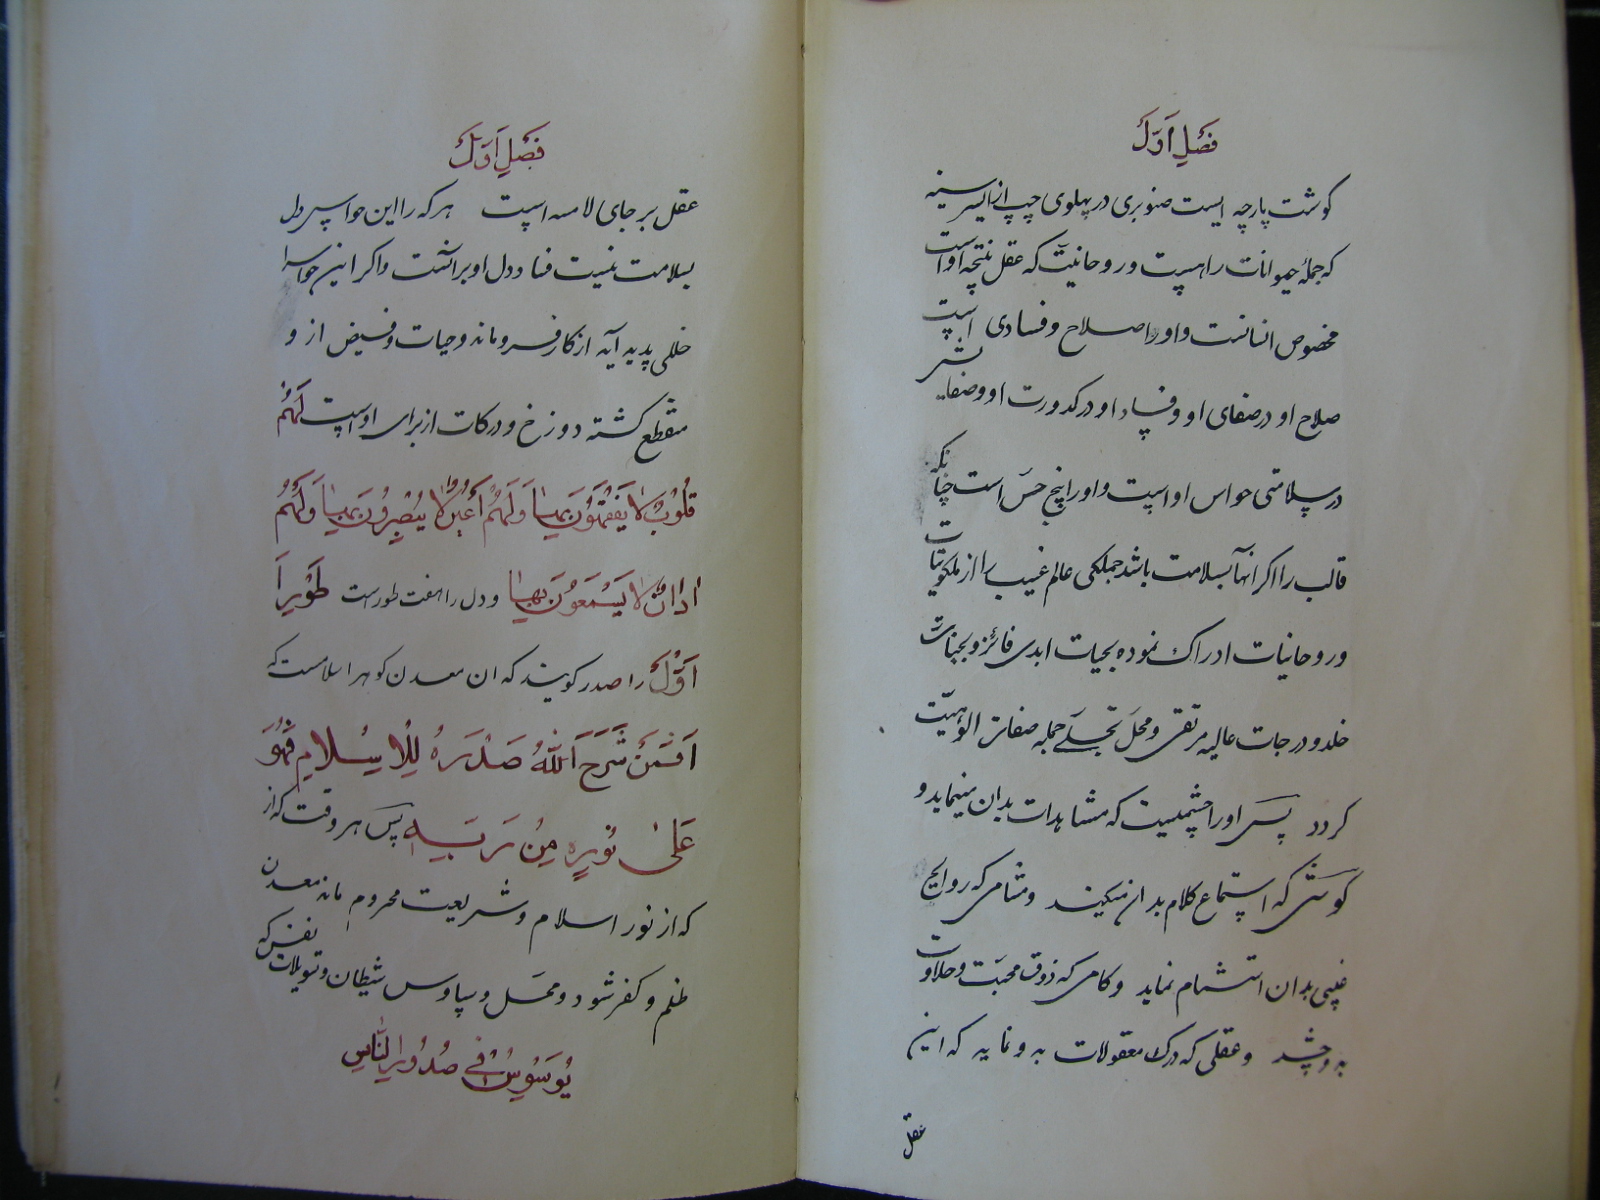 فصل اول
گوشت پارچه ایست صنوبری در پهلوی چپ از ایسر سینه
که جملهٔ حیوانات را هست و روحانیت که عقل نتیجه اوست
مخصوص انسانست و او را صلاح و فسادی است
صلاح او در صفای او و فساد او در کدورت او و صفایش
در سلامتی حواس او است و او را پنج حس است چنانکه
قالب را اگر انها بسلامت باشد جملگی عالم غیب را از ملکوتیات
و روحانیات ادراک نموده بحیات ابدی فائز و بجنات
خلد و درجات عالیه مرتقی و محل تجلی جمله صفات الوهیت
گردد پس او را چشمیست که مشاهدات بدان مینماید و
گوشی که استماع کلام بدان میکیند و مشامی که روایح
غیبی بدان استشمام نماید و کامی که ذوق محبت و حلاوت
بدو چشد و عقلی که درک معقولات بدو نماید که این
عقل
فصل اول
عقل بر جای لامسه است هر که را این حواس دل
بسلامت نیست فساد دل او بر آنست و اگر این حواس را
خللی پدید آید از کار فرو ماند و حیات و فیض از و
منقطع گشته دوزخ و درکات از برای او است لَهُم
قُلُوبٌ لا يَفقَهُونَ بِها وَلَهُم أَعيُنٌ لا يُبصِرُونَ بِها وَلَهُم
اذانٌ لا يَسمَعُونَ بِها و دل را هفت طور است طَوْرِ
اَوَّل را صدر گویند که ان معدن گوهر اسلامست که
اَفَمَنْ شَرَحَ اَللهُ صَدْرَهُ لِلْاِسْلامِ فَهُوَ
عَلى نُورٍ مِنْ رَبِّهِ پس هر وقت که از
که از نور اسلام و شریعت محروم ماند معدن
ظلم و کفر شود و محل وساوس شیطان و تسویلات نفس که
یُوَسْوِسُ فی صُدُورِ النَّاسِ